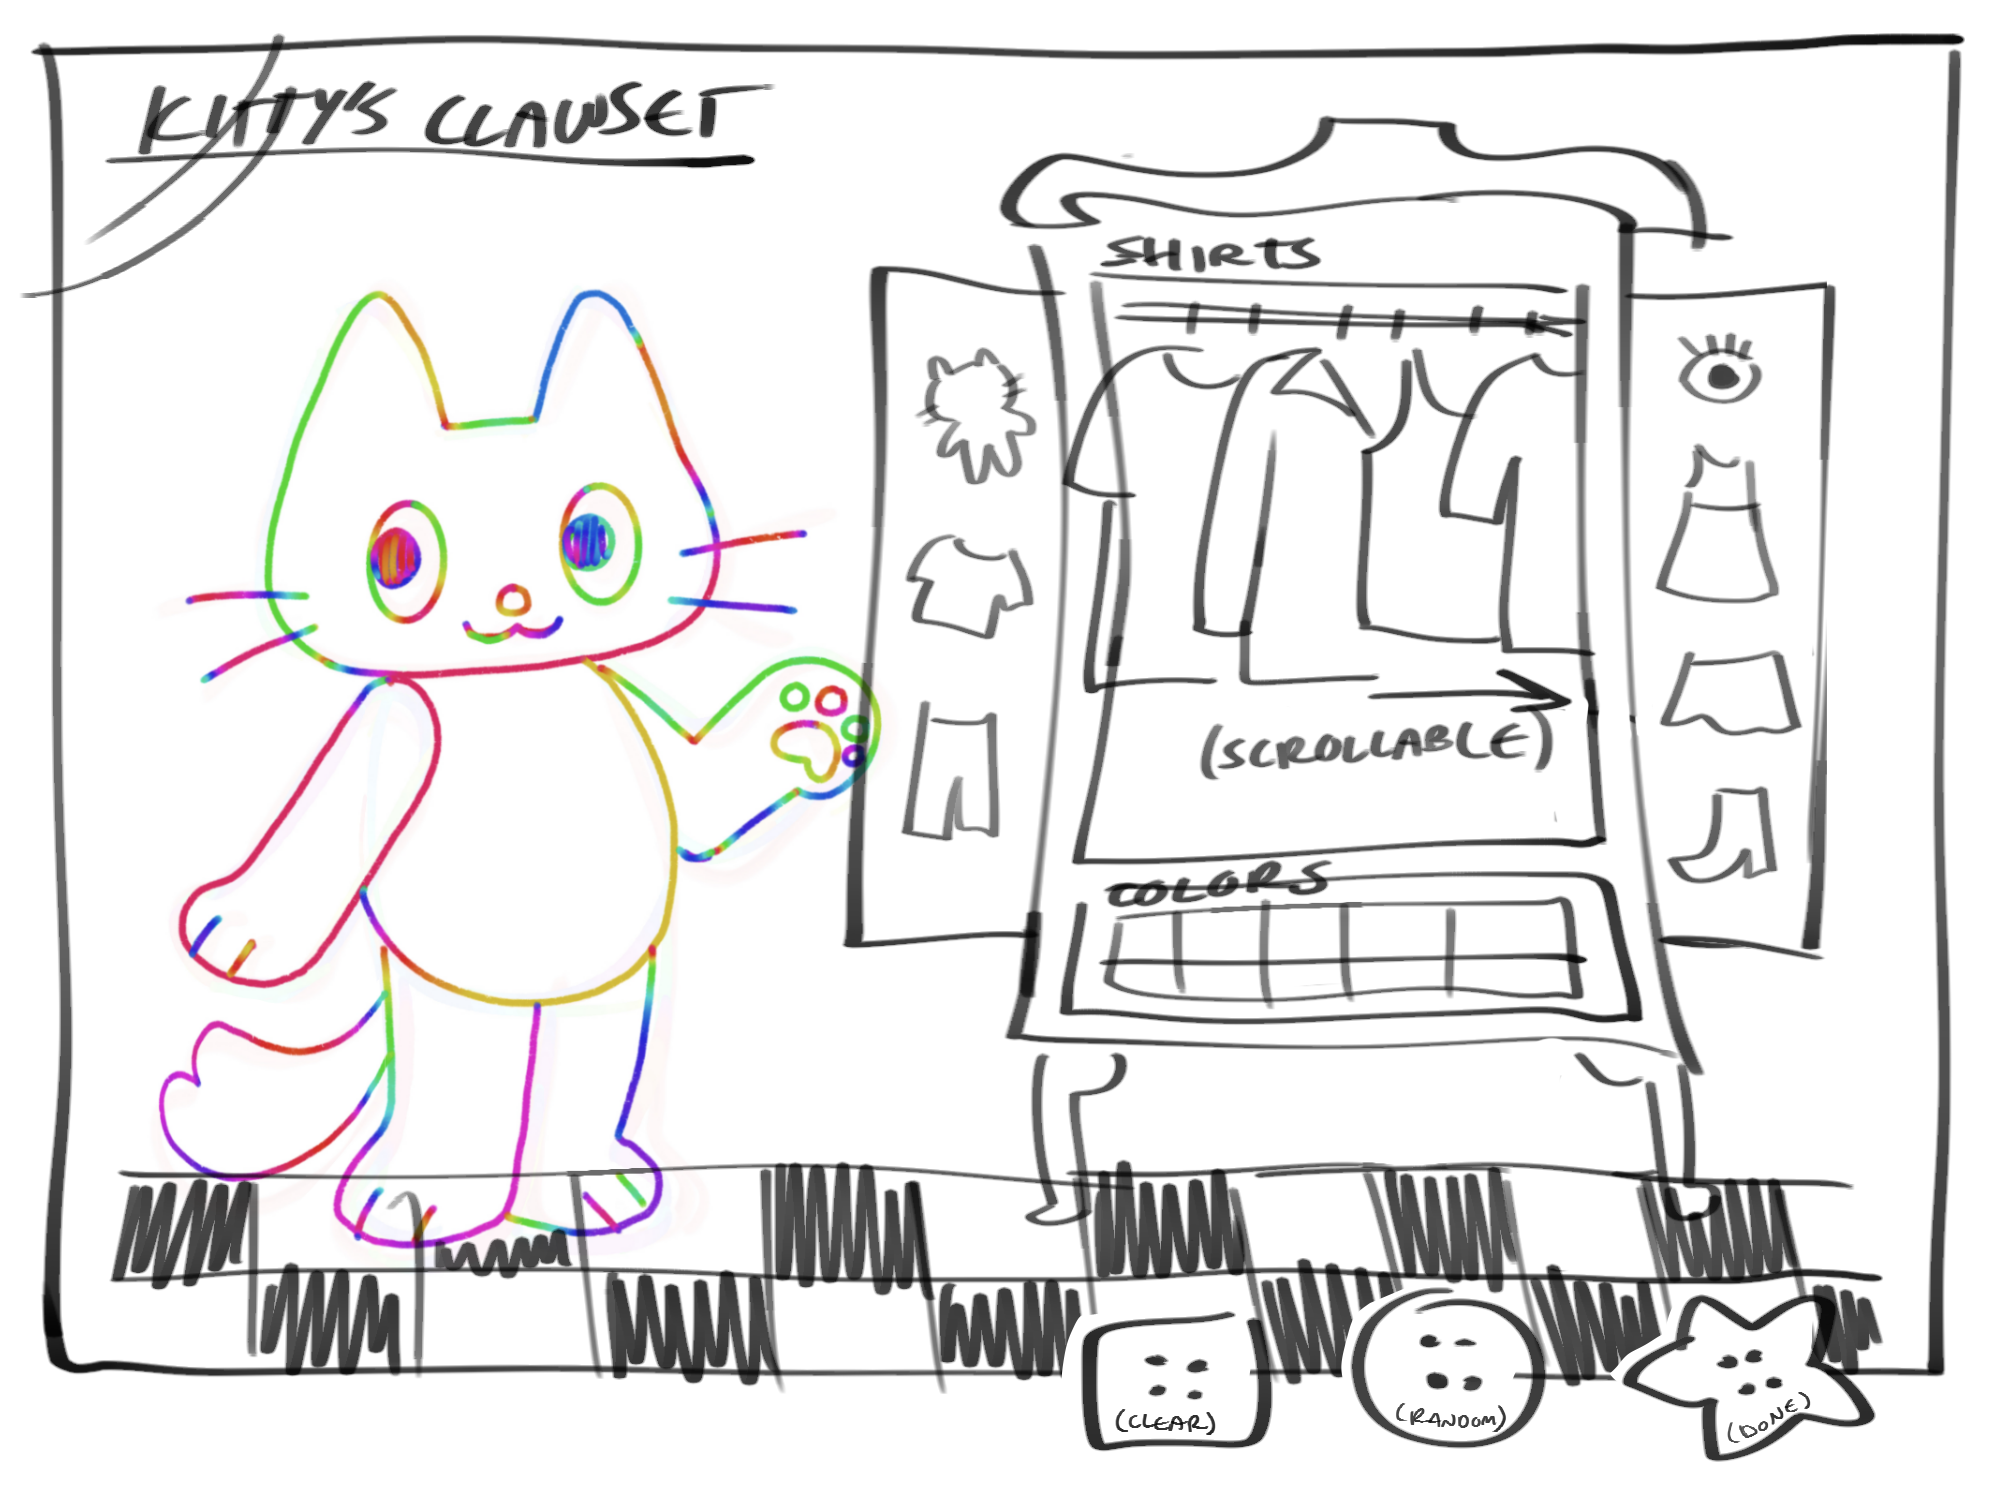 KITTY'S CLAWSET
SHIRTS
(SCROLLABLE)
COLORS
(CLEAR)
(RANDOM)
(DONE)